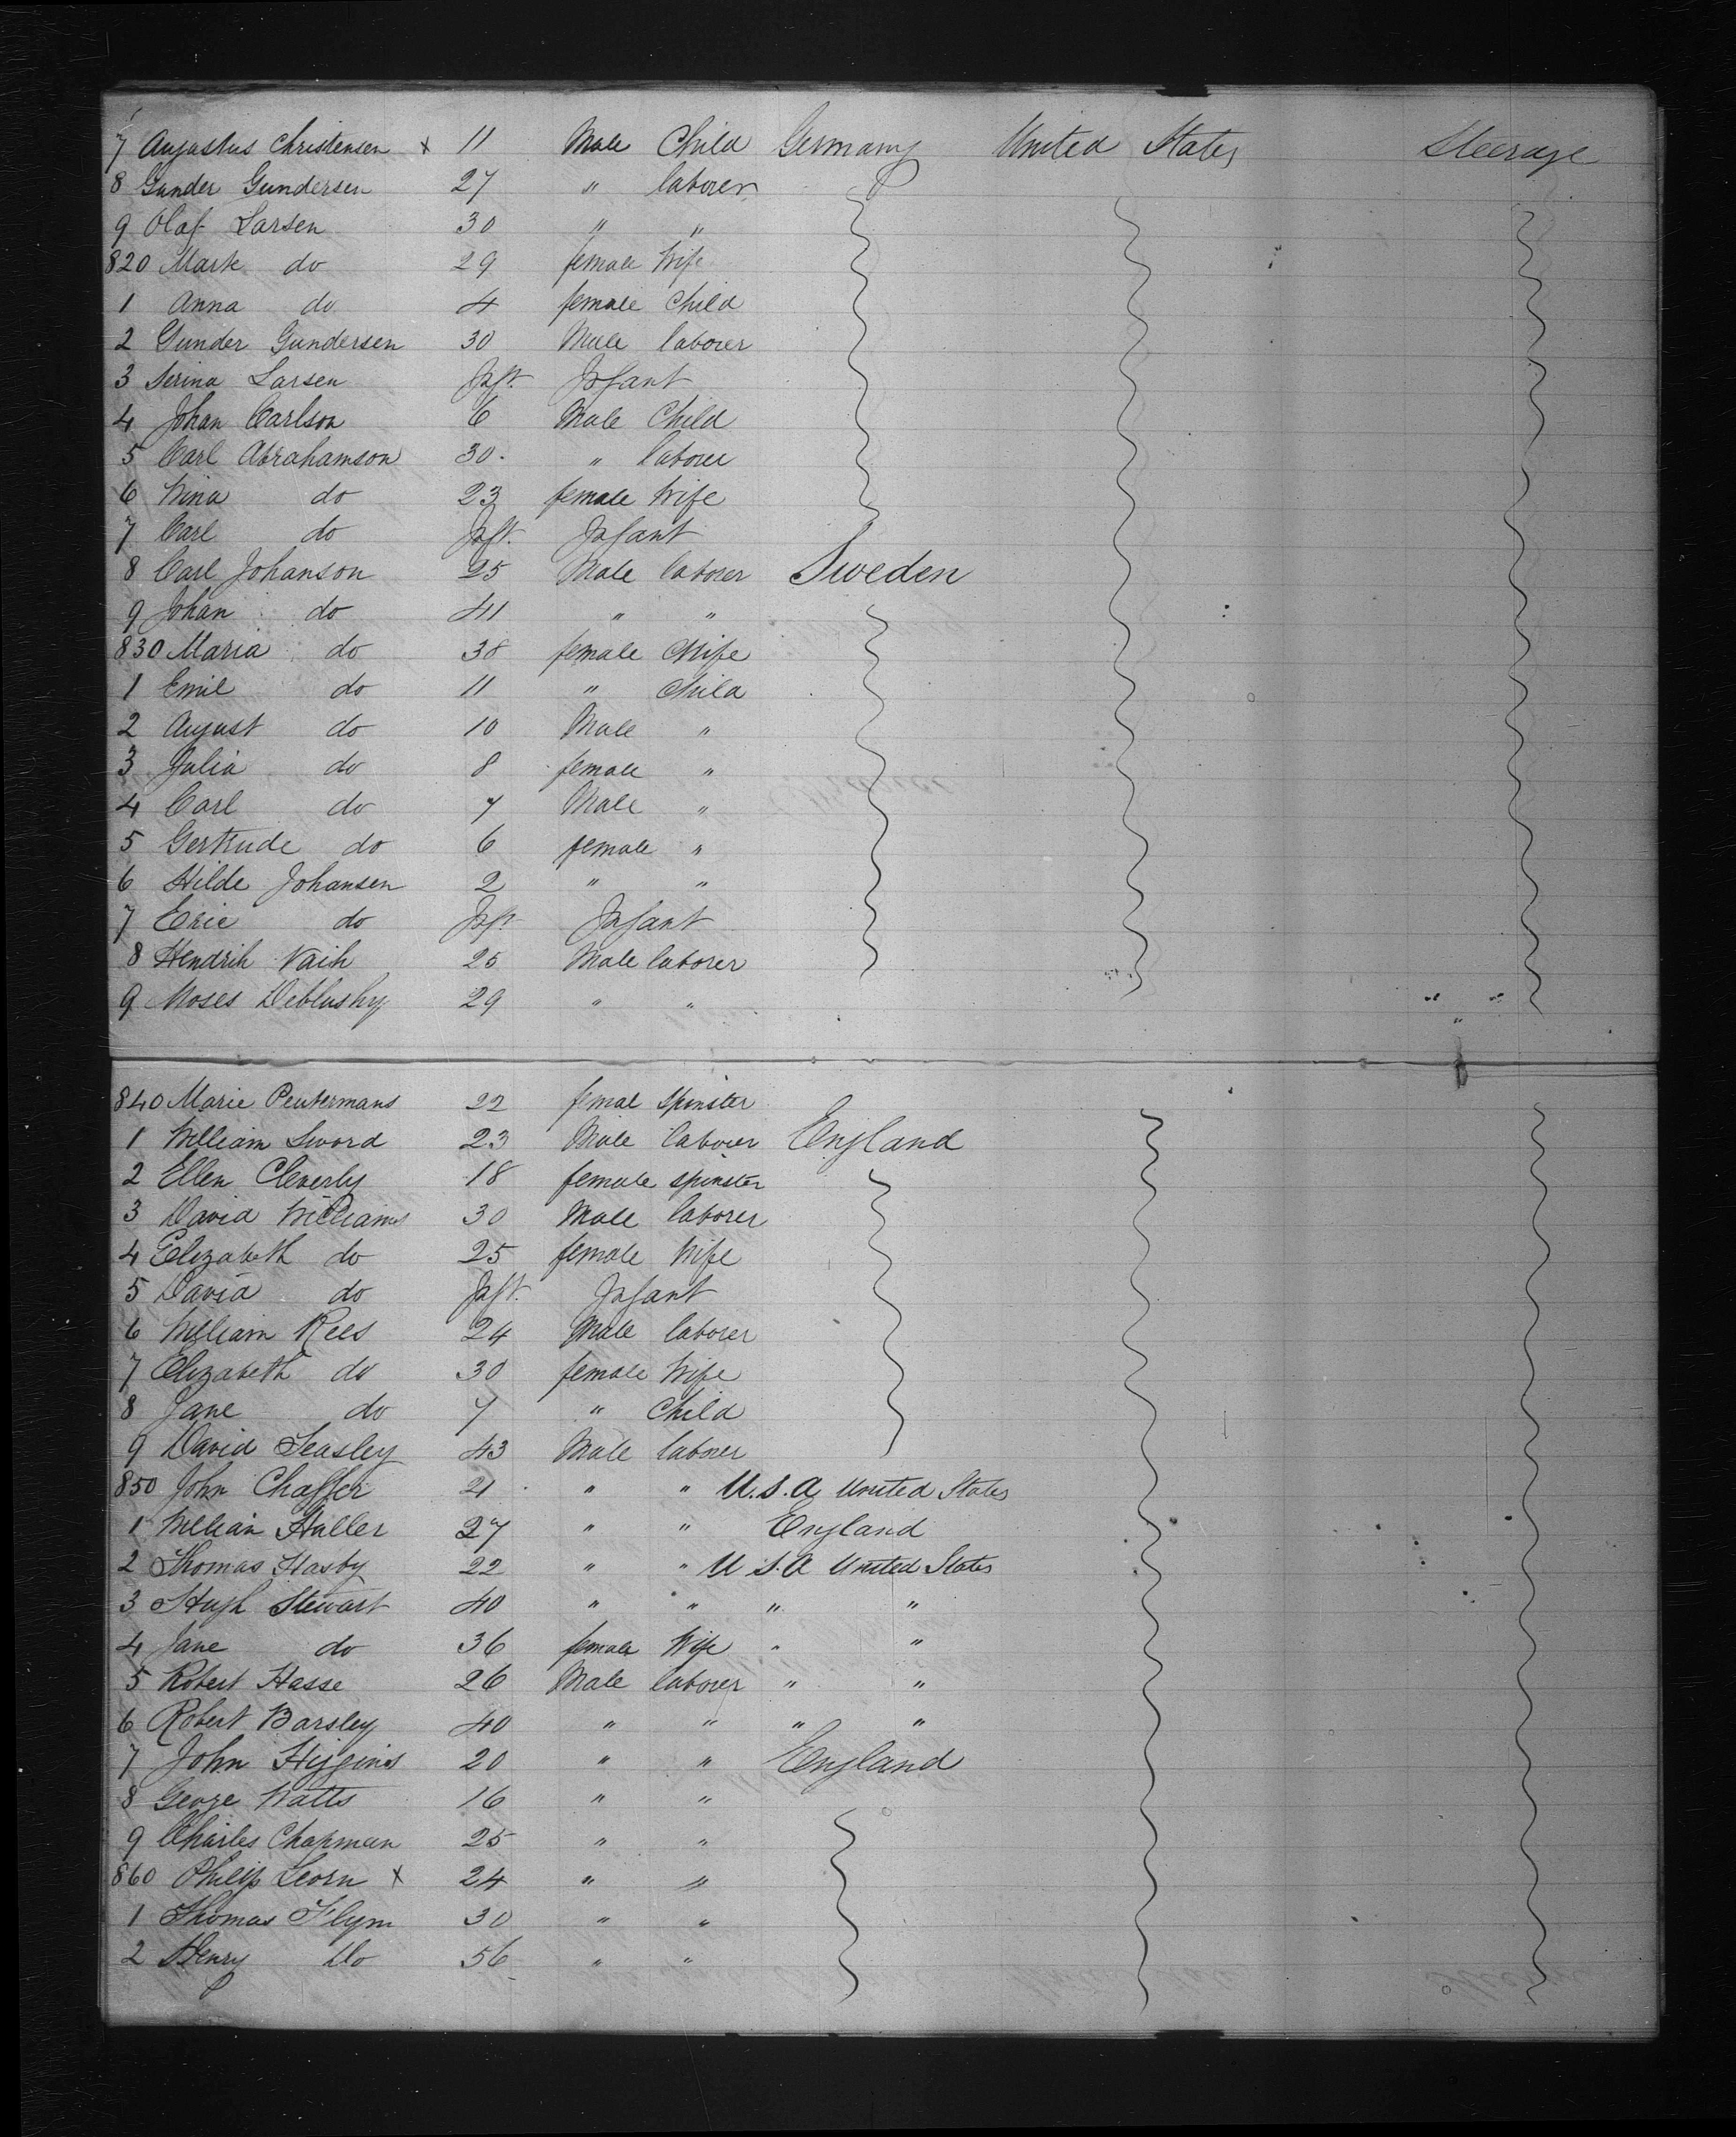 7 Augustus Christensen x 11 Male Child Germany United States Steerage
8 Gunder Gundersen 27 " laborer
9 Olaf Larsen 30 " "
820 Mark do 29 female Wife
1 Anna do 4 female Child
2 Gunder Gundersen 30 Male laborer
3 Serina Larsen Inft. Infant
4 Johan Carlson 6 Male Child
5 Carl Abrahamson 30. " laborer
6 Nina do 23 female Wife
7 Carl do Inft. Infant
8 Carl Johanson 25 Male laborer Sweden
9 Johan do 41 " "
830 Maria do 38 female Wife
1 Emil do 11 " Child
2 August do 10 Male "
3 Julia do 8 female "
4 Carl do 7 Male "
5 Gertrude do 6 female "
6 Hilde Johansen 2 " "
7 Eric do Inft Infant
8 Hendrih Naih 25 Male laborer
9 Moses 29 " "
840 Marie Peutermans 22 femal spinster
1 William Sword 23 Male laborer England
2 Ellen Cleverly 18 female spinster
3 David Williams 30 Male laborer
4 Elizabeth do 25 female Wife
5 David do Inft. Infant
6 William Rees 24 Male laborer
7 Elizabeth do 30 female Wife
8 Jane do 7 " Child
9 David Seasley 43 Male laborer
850 John Chaffer 21 " " U.S.A United States
1 William Haller 27 " " England
2 Thomas Hasby 22 " " U.S.A United States
3 Hugh Stewart 40 " " " "
4 Jane do 36 female Wife " "
5 Robert Hasse 26 Male laborer " "
6 Robert Barsley 40 " " " "
7 John Higgins 20 " " England
8 George Watts 16 " "
9 Charles Chapman 25 " "
860 Philip Leorn x 24 " "
1 Thomas Flynn 30 " "
2 Henry Do 56 " "